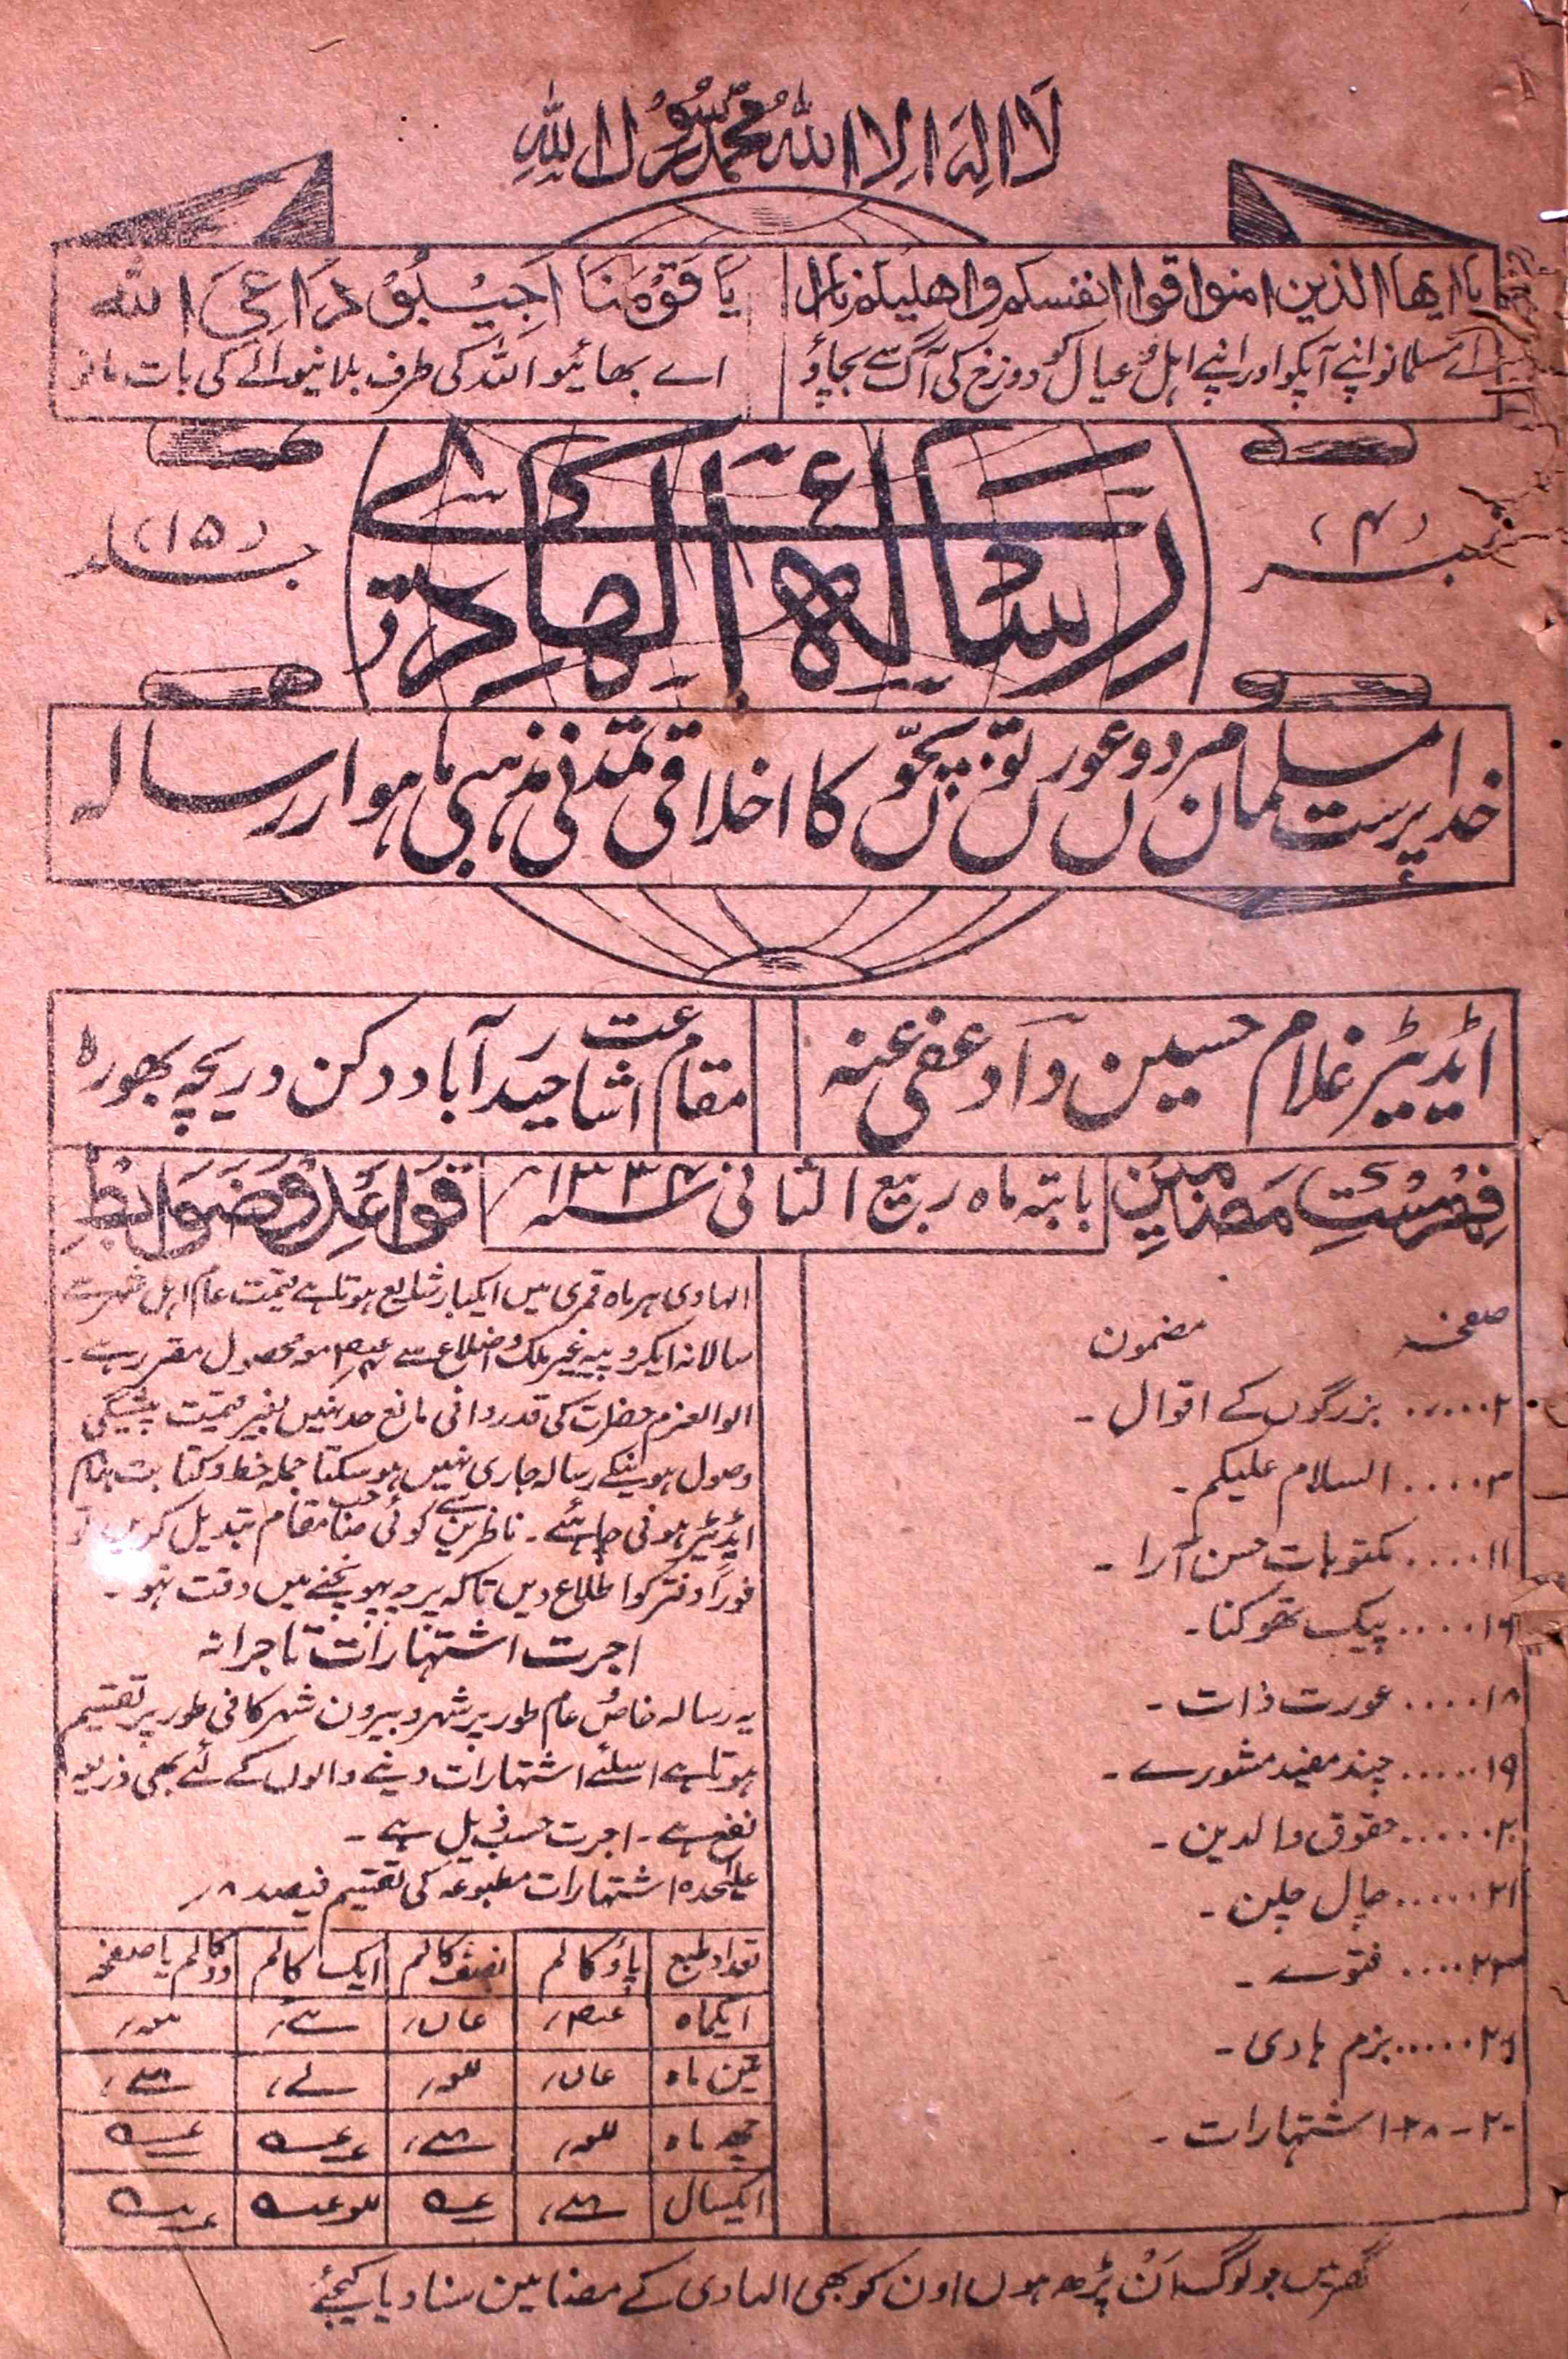 لَا اِلٰہَ اِلَّا اللّٰہُ مُحَمَّدٌ رَّسُوْلُ اللّٰہِ
یا ایھا الذین امنوا قوا انفسکم و اھلیکم نارا
اے مسلمانو اپنے آپکو اور اپنے اہل و عیال کو دوزخ کی آگ سے بچاؤ
یَا قَوْمَنَا اَجِیْبُوْا دَاعِیَ اللّٰہ
اے بھائیو اللہ کی طرف بلانیوالے کی بات مانو
نمبر (۴)
رسالہ الھادی
جلد (۱۵)
خدا پرست مسلمان مردوں عورتوں بچّوں کا اخلاقی تمدنی مذہبی ماہوار رسالہ
ایڈیٹر غلام حسین داآد عفی عنہ
مقام اشاعت حیدرآباد دکن دریچہ بھورہ
فہرستِ مضامین
بابتہ ماہ ربیع الثانی سنہ ۱۳۳۴
قواعد و ضوابط
صفحہ مضمون
۲...... بزرگوں کے اقوال ۔
۳..... السلام علیکم ۔
۱۱..... مکتوبات حسن آرا ۔
۱۶..... پیک تھوکنا ۔
۱۸..... عورت ذات ۔
۱۹..... چند مفید مشورے ۔
۲۰..... حقوق والدین ۔
۲۱..... چال چلن ۔
۲۳..... فتوے ۔
۲۶..... بزم ہادی ۔
اشتہارات ۔
الہادی ہر ماہ قمری میں ایکبار شایع ہوتا ہے قیمت عام اہل شہر سے
سالانہ ایکروپیہ غیر ملک و اضلاع سے معہ محصول مقرر ہے ۔
الوالعزم حضرات کی قدردانی مانع حد نہیں بغیر قیمت پیشگی
وصول ہونیکے رسالہ جاری نہیں ہوسکتا جملہ خط و کتابت بنام
ایڈیٹر ہونی چاہئے ۔ ناظرین سے کوئی صاحب مقام تبدیل کریں تو
فوراً دفتر کو اطلاع دیں تاکہ پرچہ پہونچنے میں دقت نہو ۔
اجرت اشتہارات تاجرانہ
یہ رسالہ خاص و عام طور پر شہر و بیرون شہر کافی طور پر تقسیم
ہوتا ہے اسلئے اشتہارات دینے والوں کے لئے بھی ذریعہ
نفع ہے ۔ اجرت حسب ذیل ہے ۔
علیٰحدہ اشتہارات مطبوعہ کی تقسیم فیصد ۸؍
تعداد طبع پاؤ کالم نصف کالم ایک کالم دو کالم یا صفحہ
ایکماہ
تین ماہ
چھہ ماہ
ایکسال
گھر میں جو لوگ اَن پڑھ ہوں اون کو بھی الہادی کے مضامین سنا دیا کیجئے